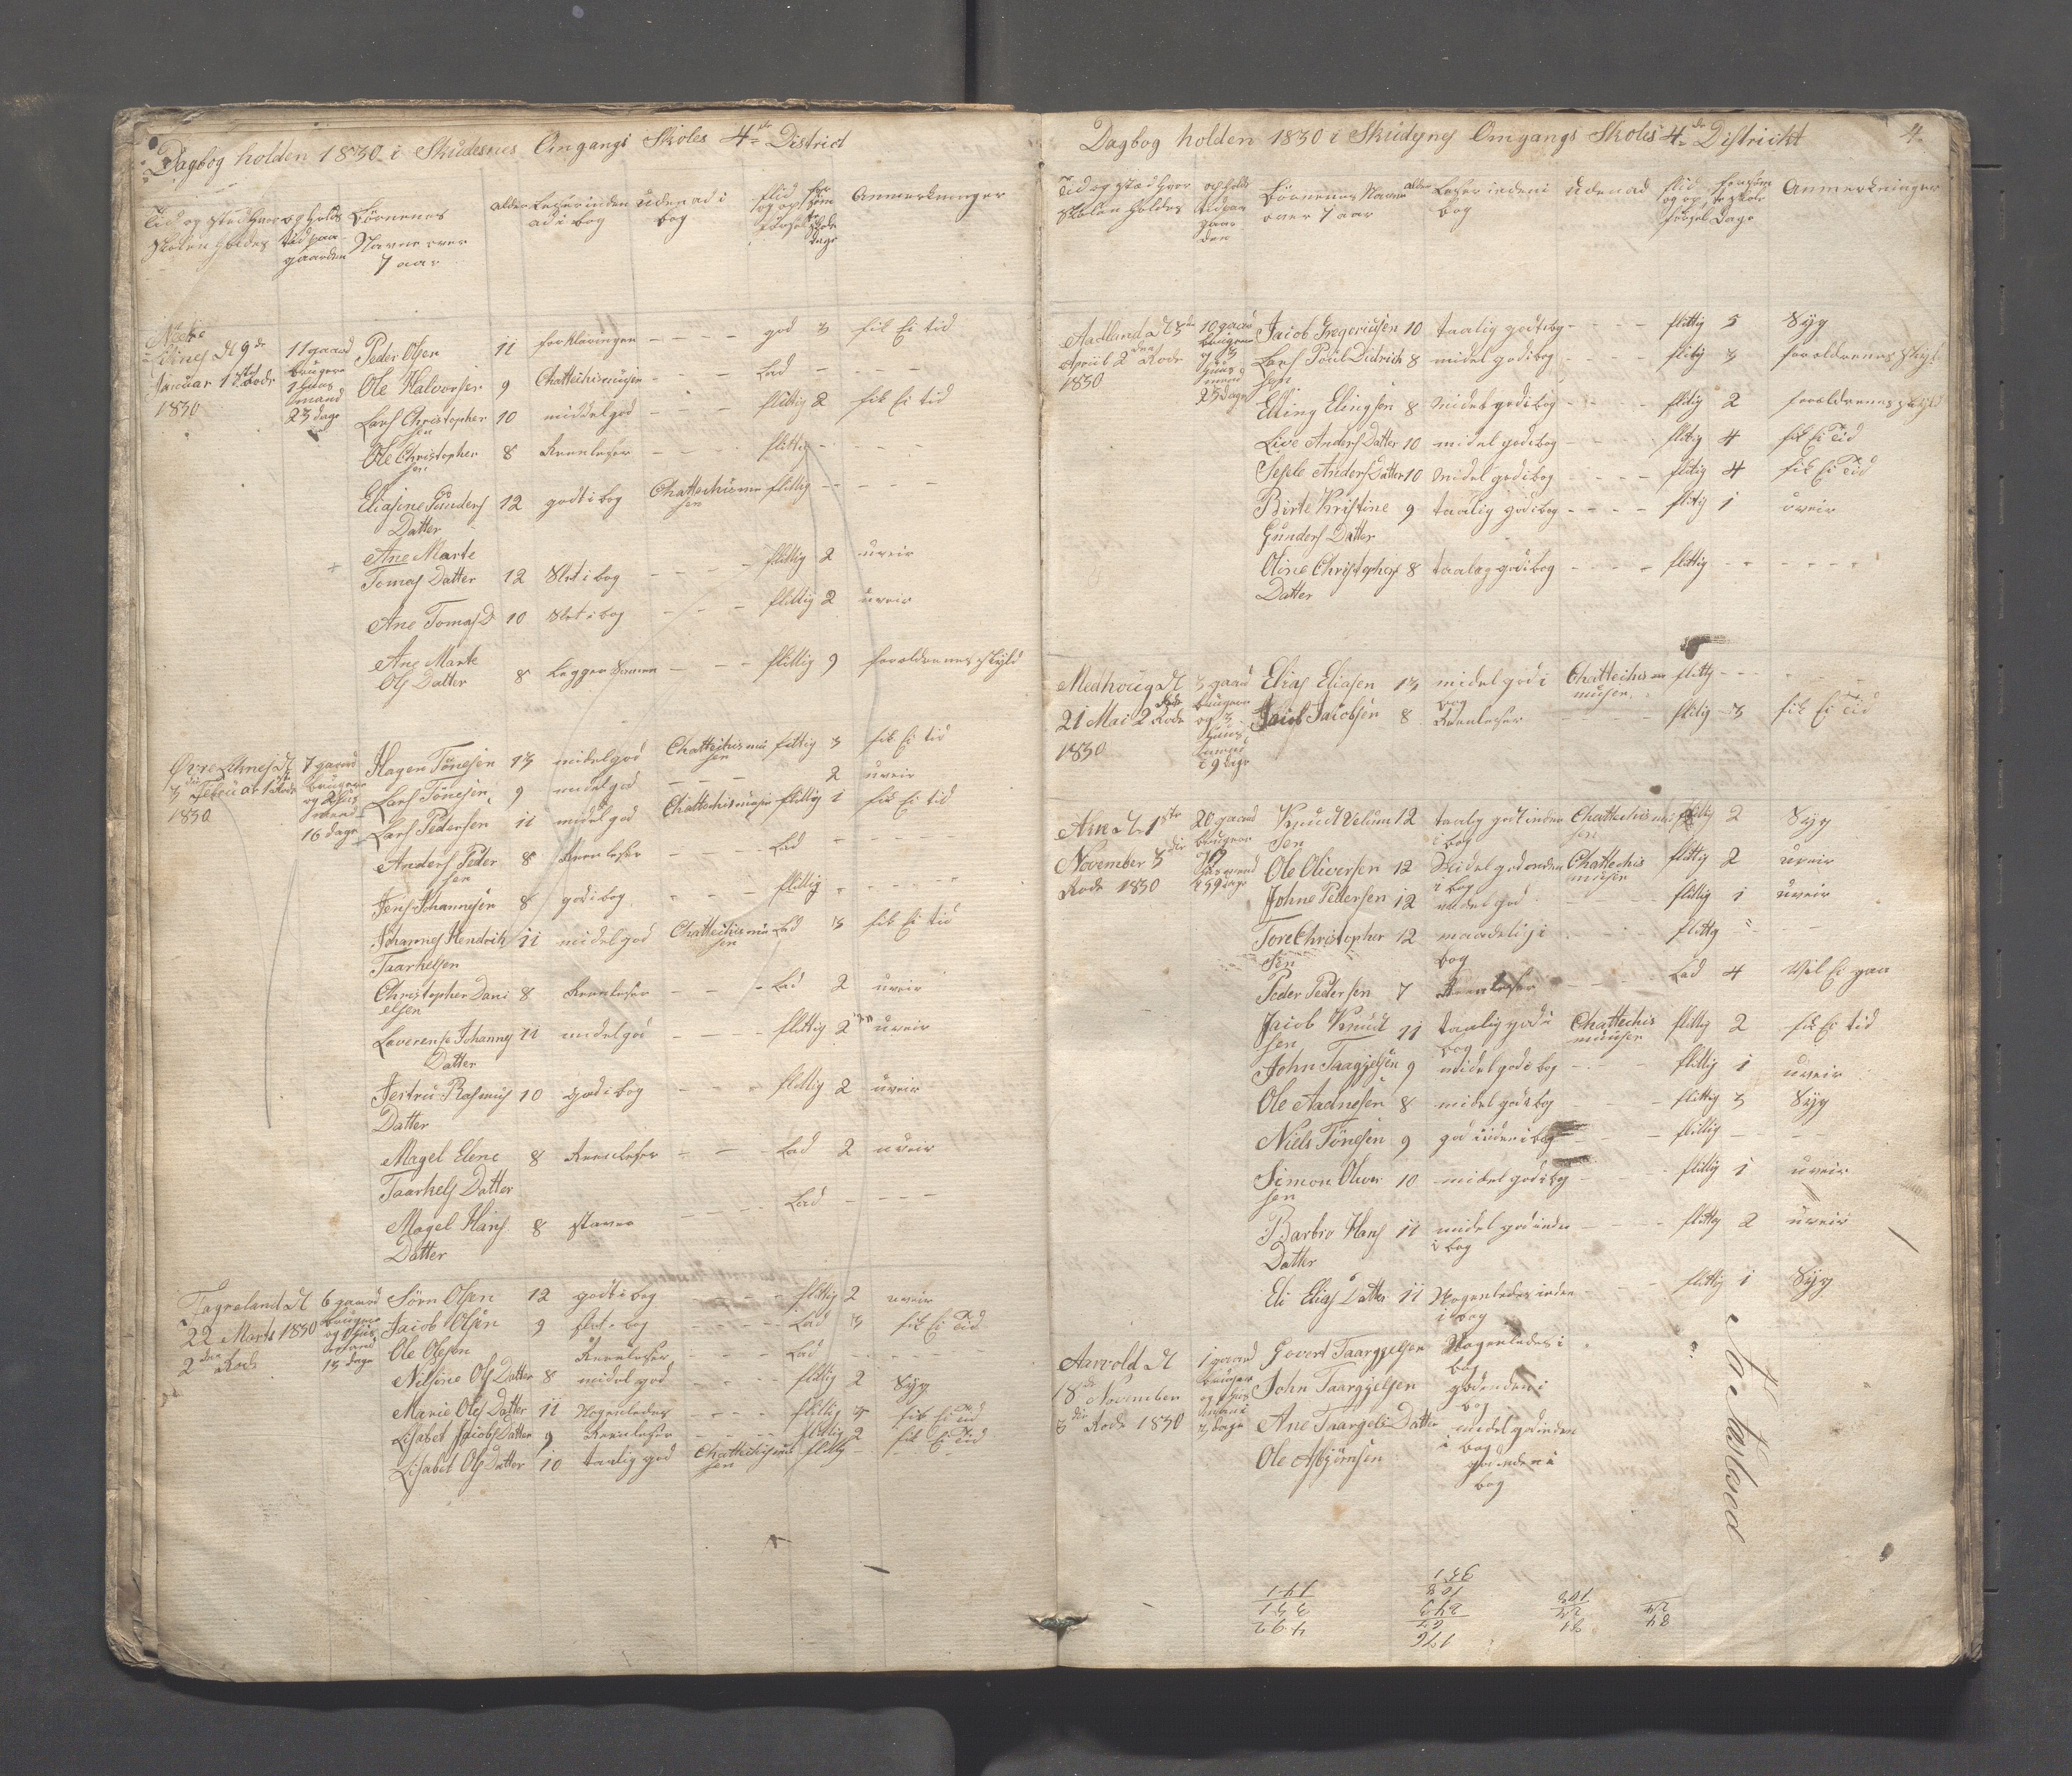 Dagbog holden 1830 i Skudesnes Omgangs Skoles 4de District
Tid og sted hvor Skolen holdes
opholds tid paa gaarden
Börnenes Navne over 7 aar
alder
Leser inden ad i bog
uden ad i bog
flid og opförsel
forsömte skole dage
Anmerkninger
11 gaard brugere 1 huusmand 23 dage
Januar 1ste Rode 1830
Peder Olsen 11 forklaringen - - - - god 3 fik Ei tid
Ole Halvorsen 9 Chattechismusen - - - Lad - - - -
Lars Christophersen 10 middel god - - - flittig 2 fik Ei tid
Ole Christophersen 8 Reenleser - - - - flittig - - - -
Eliasine Gunders Datter 12 godt i bog Chattechismusen flittig - - - -
Ane Marte Tomas Datter 12 Slet i bog - - - flittig 2 uveir
Ane Tomas D 10 Slet i bog - - - flittig 2 uveir
Ane Marte Ols Datter 8 Legger Sammen - - - flittig 9 foreldrenes skyld
3 Februar 1ste Rode 1830
7 gaard brugere og 2 huusmand 16 dage
Hagen Tönesen 13 midel god Chattechismusen flittig 3 fik Ei tid
Lars Tönesen 9 midel god - - - 2 uveir
Lars Pedersen 11 midel god Chattechismusen flittig 1 fik Ei tid
Anders Pedersen 8 Reenleser - - - - Lad - - - -
Jens Johannesen 8 god i bog - - - flittig - - - -
Johannes Hendrik Taarkelsen 11 midel god Chattechismusen Lad 3 fik Ei tid
Christopher Danielsen 8 Reenleser - - - Lad 2 uveir
Laverense Johannes Datter 11 midel god - - - flittig 2 uveir
Jertru Rasmus Datter 10 god i bog - - - flittig 2 uveir
Magel Elene Taarkels Datter 8 Reenleser - - - Lad 2 uveir
Magel Hans Datter 8 staver - - - - Lad - - - -
Fagreland Dt 22 Marts 1830 2den Rode
6 gaard brugere og huusmand 13 dage
Sörn Olsen 12 godt i bog - - - - flittig 2 uveir
Jacob Olsen 9 slet i bog - - - - Lad 3 fik Ei Tid
Ole Olesen Reenleser - - - - Lad - - - -
Nilsine Ols Datter 8 midel god - - - - flittig 2 Syg
Marie Oles Datter 11 Nogenledes - - - - flittig 3 fik Ei Tid
Lisabet Jacobs Datter 9 Reenleser - - - - flittig 2 fik Ei Tid
Lisabet Ols Datter 10 taalig god Chattechismusen flittig -
Dagbog holden 1830 i Skudesnes Omgangs Skoles 4de Districkt
4
Tid og stæd hvor skolen holdes
opholds tid paa gaarden
Börnenes Navne over 7 aar
alder
Leser inden i bog
udenad
flid og opförsel
forsömte skole dage
Anmerkninger
Aadland Dt 3de April 2den Rode 1830
10 gaard brugere og 3 huusmend 23 dage
Jacob Gregeriusen 10 taalig godt i bog - - - - flittig 5 Syg
Lars Poul Didriksen 8 midel god i bog - - - - flitig 3 foreldrenes skyld
Elling Elingsen 8 midel god i bog - - - - flitig 2 foreldrenes skyld
Live Anders Datter 10 midel god i bog - - - - flitig 4 fik Ei Tid
Sesele Anders Datter 10 midel god i bog - - - - flitig 4 fik Ei Tid
Birte Kristine Gunders Datter 9 taalig god i bog - - - - flitig 1 uveir
Oline Christophers Datter 8 taalig god i bog - - - - flittig - - - - - -
Medhoug Dt 21 Mai 2den Rode 1830
3 gaard brugere og 3 huusmand 9 dage
Elias Eliasen 13 midel god i bog Chattechismusen flittig - - -
Jacob Jacobsen 8 Reenleser - - - - flitig 3 fik Ei Tid
Dt 1ste November 3die Rode 1830
20 gaard brugere
59 dage
Knudt Velumsen 12 taalig godt inden i bog Chattechismusen flittig 2 Syg
Ole Oliversen 12 Midel god inden i bog Chattechismusen flittig 2 uveir
Johne Pedersen 12 midel god - - - - flittig 1 uveir
Tore Christophersen 12 maadelig i bog - - - flittig " - -
Peder Pedersen 7 Reenleser - - - Lad 4 Vil Ei gaa
Jacob Knudtsen 11 taalig god i bog Chattechismusen flittig 2 fik Ei tid
John Taargjelsen 9 midel god i bog - - - flittig 1 uveir
Ole Aadnesen 8 midel god i bog - - - flittig 3 Syg
Niels Tönesen 9 god inden i bog - - - flittig - - -
Simon Oliversen 10 midel god i bog - - - flittig 1 uveir
Barbro Hans Datter 11 midel god inden i bog - - - - flittig 2 uveir
Eli Elias Datter 11 Nogenledes inden i bog - - - flittig 1 Syg
Aarvold Dt 18de November 3die Rode 1830
1 gaard bruger og huusmand 3 dage
Govert Taargjelsen Nogenledes i bog
John Taargjelsen god inden i bog
Ane Taargels Datter midel god inden i bog
Ole Asbjörnsen god inden i bog
176
67
243
108
351
492
351
141